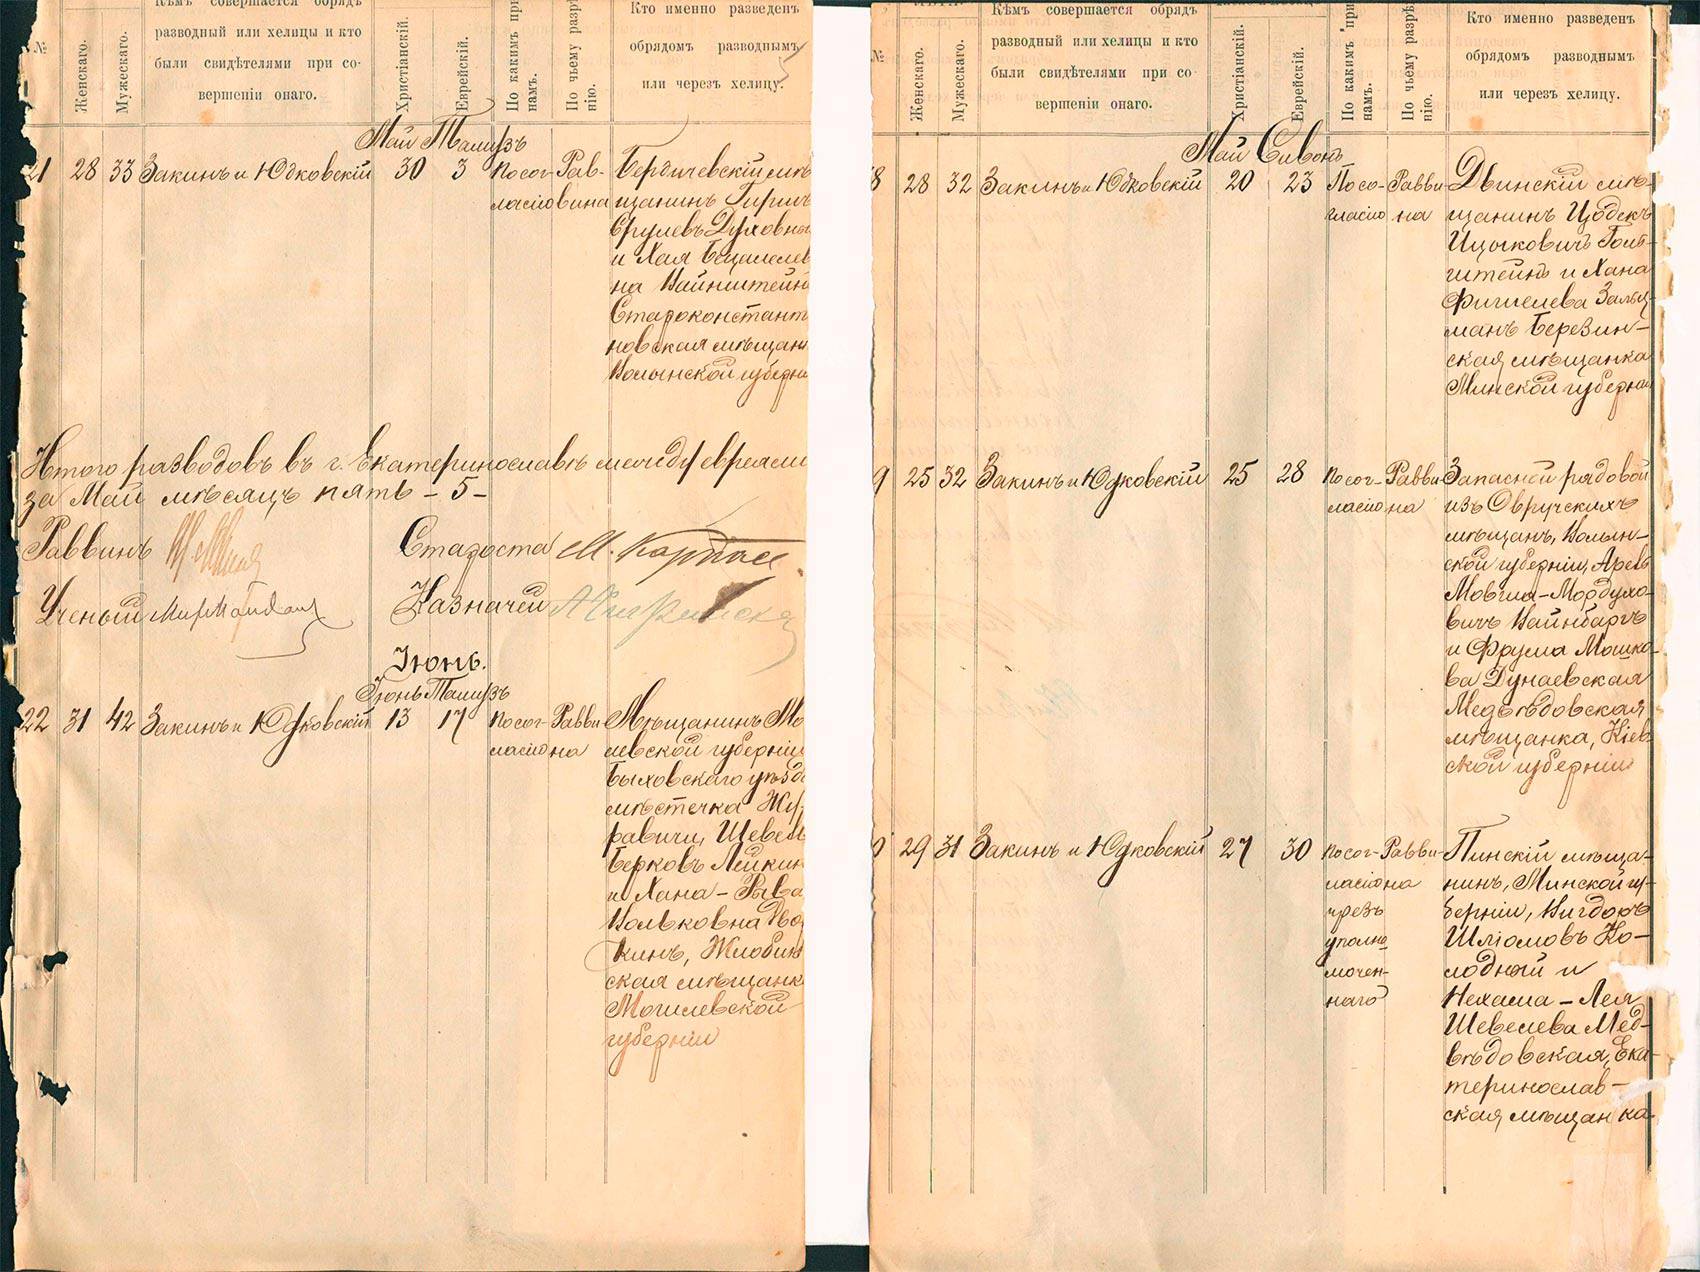 №
Женскаго.
Мужескаго.
Кѣмъ совершается обрядъ
разводный или хелицы и кто
были свидѣтелями при со-
вершеніи онаго.
Христіанскій.
Еврейскій.
По какимъ при
намъ.
По чьему разрѣ
нію.
Кто именно разведенъ
обрядомъ разводнымъ
или черезъ хелицу.
Май Тамузъ
21 28 33 Закинъ и Юдковскій 30 3 по сог- Рав- Бердичевскій мѣ
ласію вина щанинъ Гиршъ
Срулевъ Духовны
и Хая Бецалелев
на Вайнштейнъ
Староконстант
новская мѣщан
Волынской губерн
Итого разводовъ въ г. Екатеринославѣ между евреями
за Май мѣсяцъ пять - 5 -
Раввинъ
Староста М. Карпас
Ученый
Казначей
Іюнь.
Іюнь Тамузъ
22 31 42 Закинъ и Юдковскій 13 17 по сог- Равви- Мѣщанинъ Мо
ласію на левской губерніи
Быховскаго уѣзда
мѣстечка Жу-
равичи, Шевель
Берковъ Лейкин
и Хана - Рыва
Вольковна
кинъ, Жлобин
ская мѣщанк
Могилевской
губерніи
№
Женскаго.
Мужескаго.
Кѣмъ совершается обрядъ
разводный или хелицы и кто
были свидѣтелями при со
вершеніи онаго.
Христіанскій.
Еврейскій.
По какимъ при
намъ.
По чьему разрѣ
нію.
Кто именно разведенъ
обрядомъ разводнымъ
или черезъ хелицу.
Май Сивонъ
8 28 32 Закинъ и Юдковскій 20 23 По со- Равви- Двинскій мѣ-
гласію на щанинъ Цодекъ
Ицыковичъ Голь-
штейнъ и Хана
Фишелева Зальц-
манъ Березин-
ская мѣщанка
Минской губерніи
9 25 32 Закинъ и Юдковскій 25 28 по сог- Равви- Запасной рядовой
ласію на изъ Овручскихъ
мѣщанъ, Волын-
ской губерніи, Арель
Мовша-Мордухо-
вичъ Вайнбаргъ
и Фрума Мошко-
ва Дунаевская
Медвѣдовская
мѣщанка, Кіев-
ской губерніи
0 29 31 Закинъ и Юдковскій 27 30 по сог- Равви- Пинскій мѣща-
ласію на нинъ, Минской гу-
чрезъ берніи, Вигдоръ
уполно Шліомовъ Хо-
мочен- лодный и
наго Нехама - Лея
Шевелева Мед-
вѣдовская, Ека-
теринослав-
ская мѣщанка